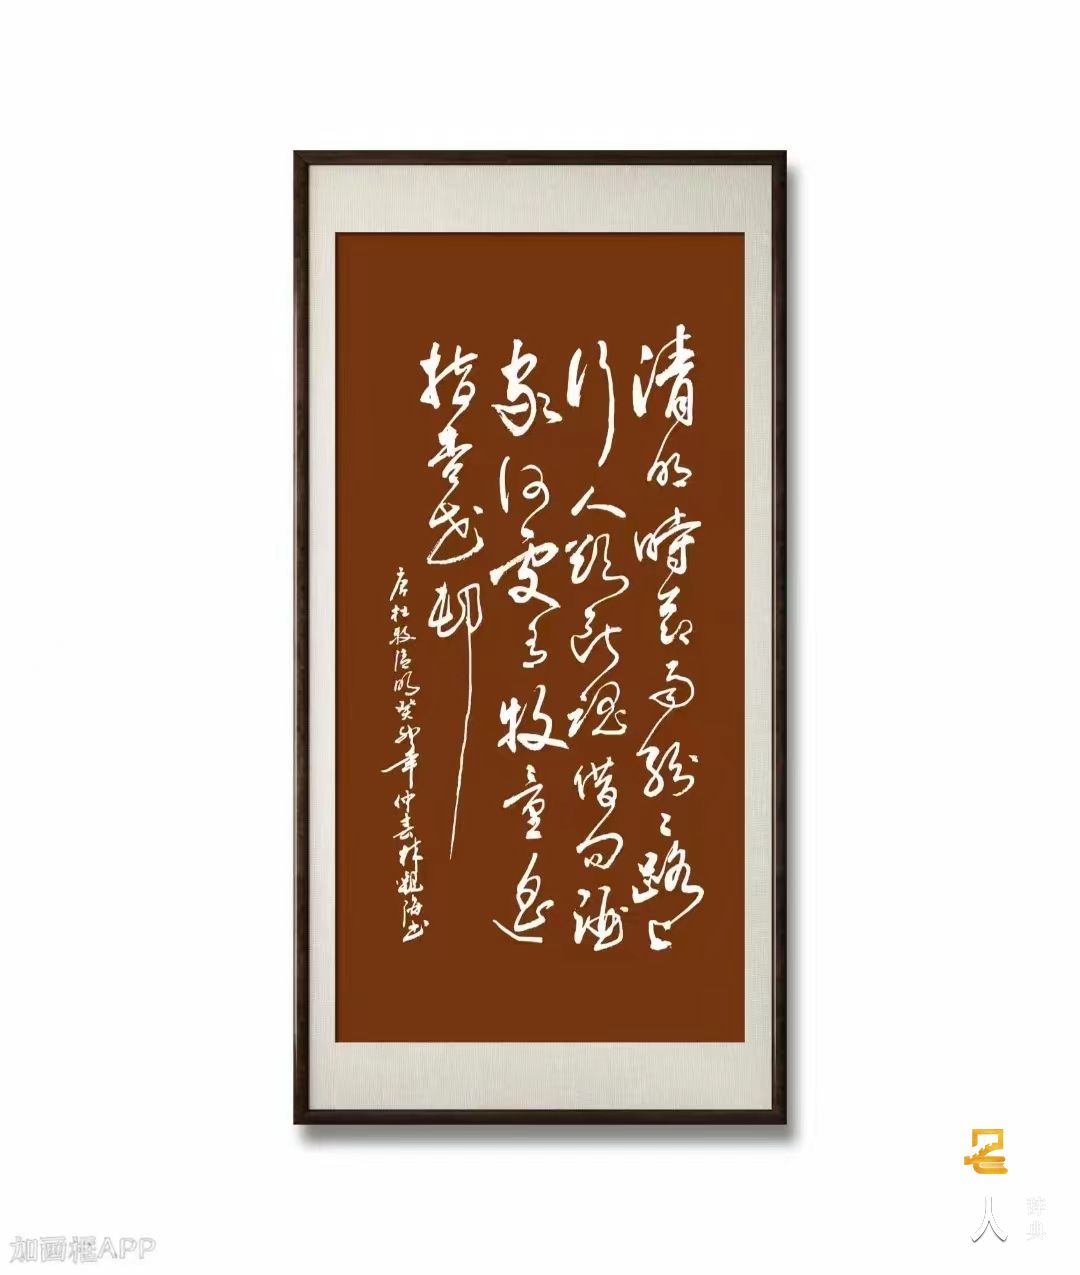 清明時節雨紛々路上
行人欲斷魂借问酒
家何處有牧童遥
指杏花邨
唐杜牧清明癸卯年仲春林觀海书
名
人
辞典
加画框APP